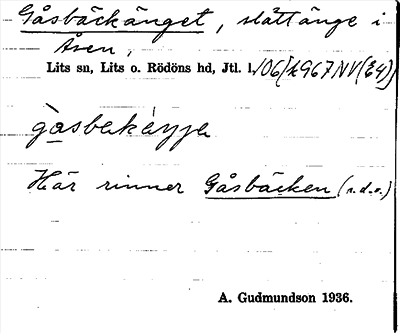 Gåsbäckänget, slåttänge i
Åsen,
Lits sn, Lits o. Rödöns hd, Jtl. l.
gåsbekäŋŋe
Här rinner Gåsbäcken (s.d.o.)
A. Gudmundson 1936.